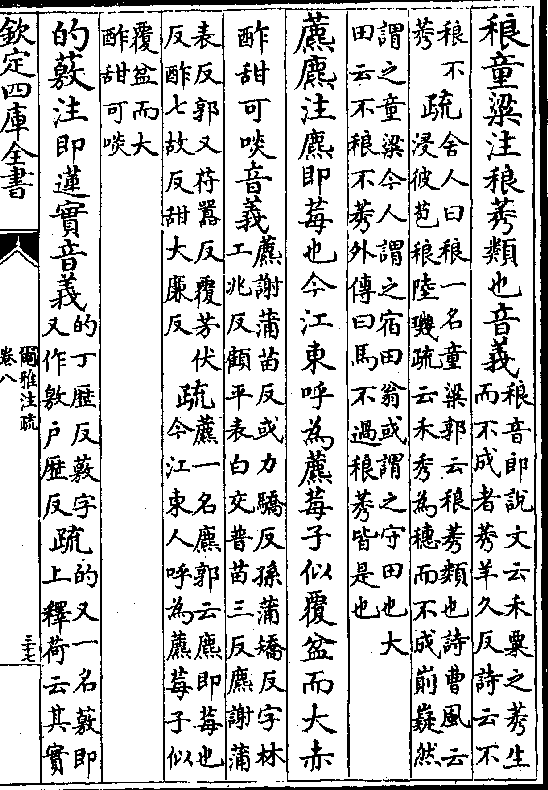 稂童粱注稂莠類也音義稂音郎說文云禾粟之莠生
而不成者莠羊久反詩云不
稂不
莠
疏舍人曰稂一名童粱郭云稂莠類也詩曹風云
浸彼苞稂陸璣疏云禾秀為穗而不成崱嶷然
謂之童粱今人謂之宿田翁或謂之守田也大
田云不稂不莠外傳曰馬不過稂莠皆是也
藨麃注麃即莓也今江東呼為藨莓子似覆盆而大赤
酢甜可啖音義藨謝蒲苗反或力驕反孫蒲矯反字林
工兆反顧平表白交普苗三反麃謝蒲
表反郭又苻嚻反覆芳伏
反酢七故反甜大廉反
疏藨一名麃郭云麃即莓也
今江東人呼為藨莓子似
覆盆而大
酢甜可啖
的薂注即蓮實音義的丁歷反薂字
又作敫户歷反
疏的又一名薂即
上釋荷云其實
欽定四庫全書
爾雅注疏
卷八
三十七